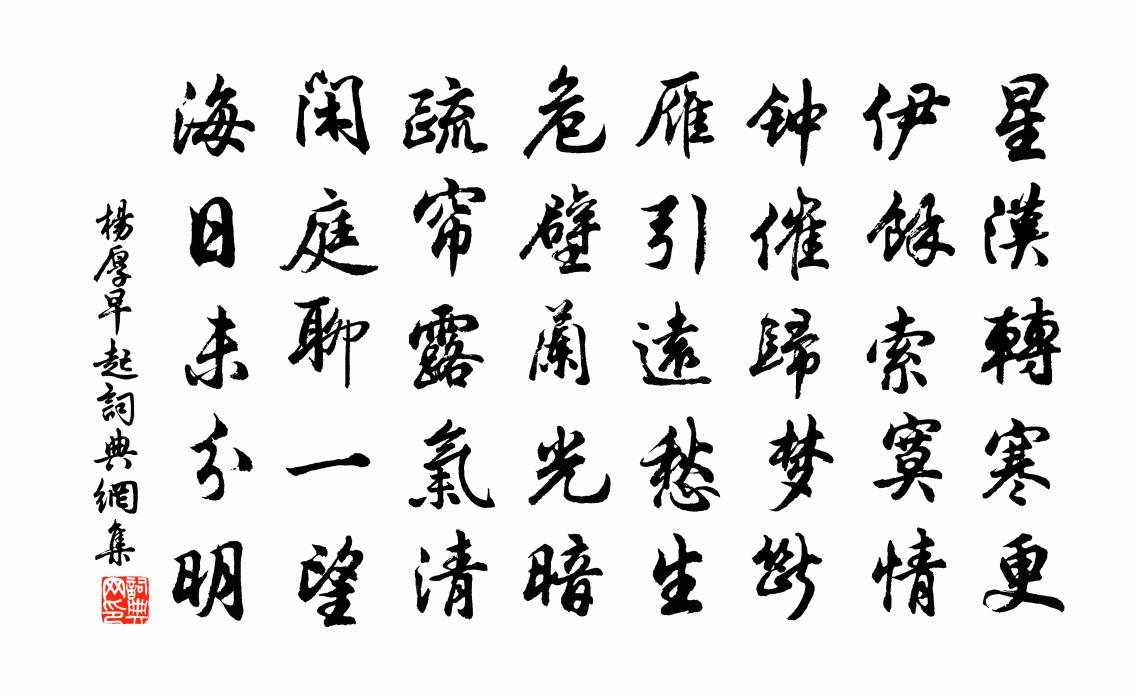 星漢轉寒更
伊餘索寞情
钟催歸梦斷
雁引遠愁生
危壁蘭光暗
疏帘露氣清
闲庭聊一望
海日未分明
楊厚早起詞典網集
詞典网印